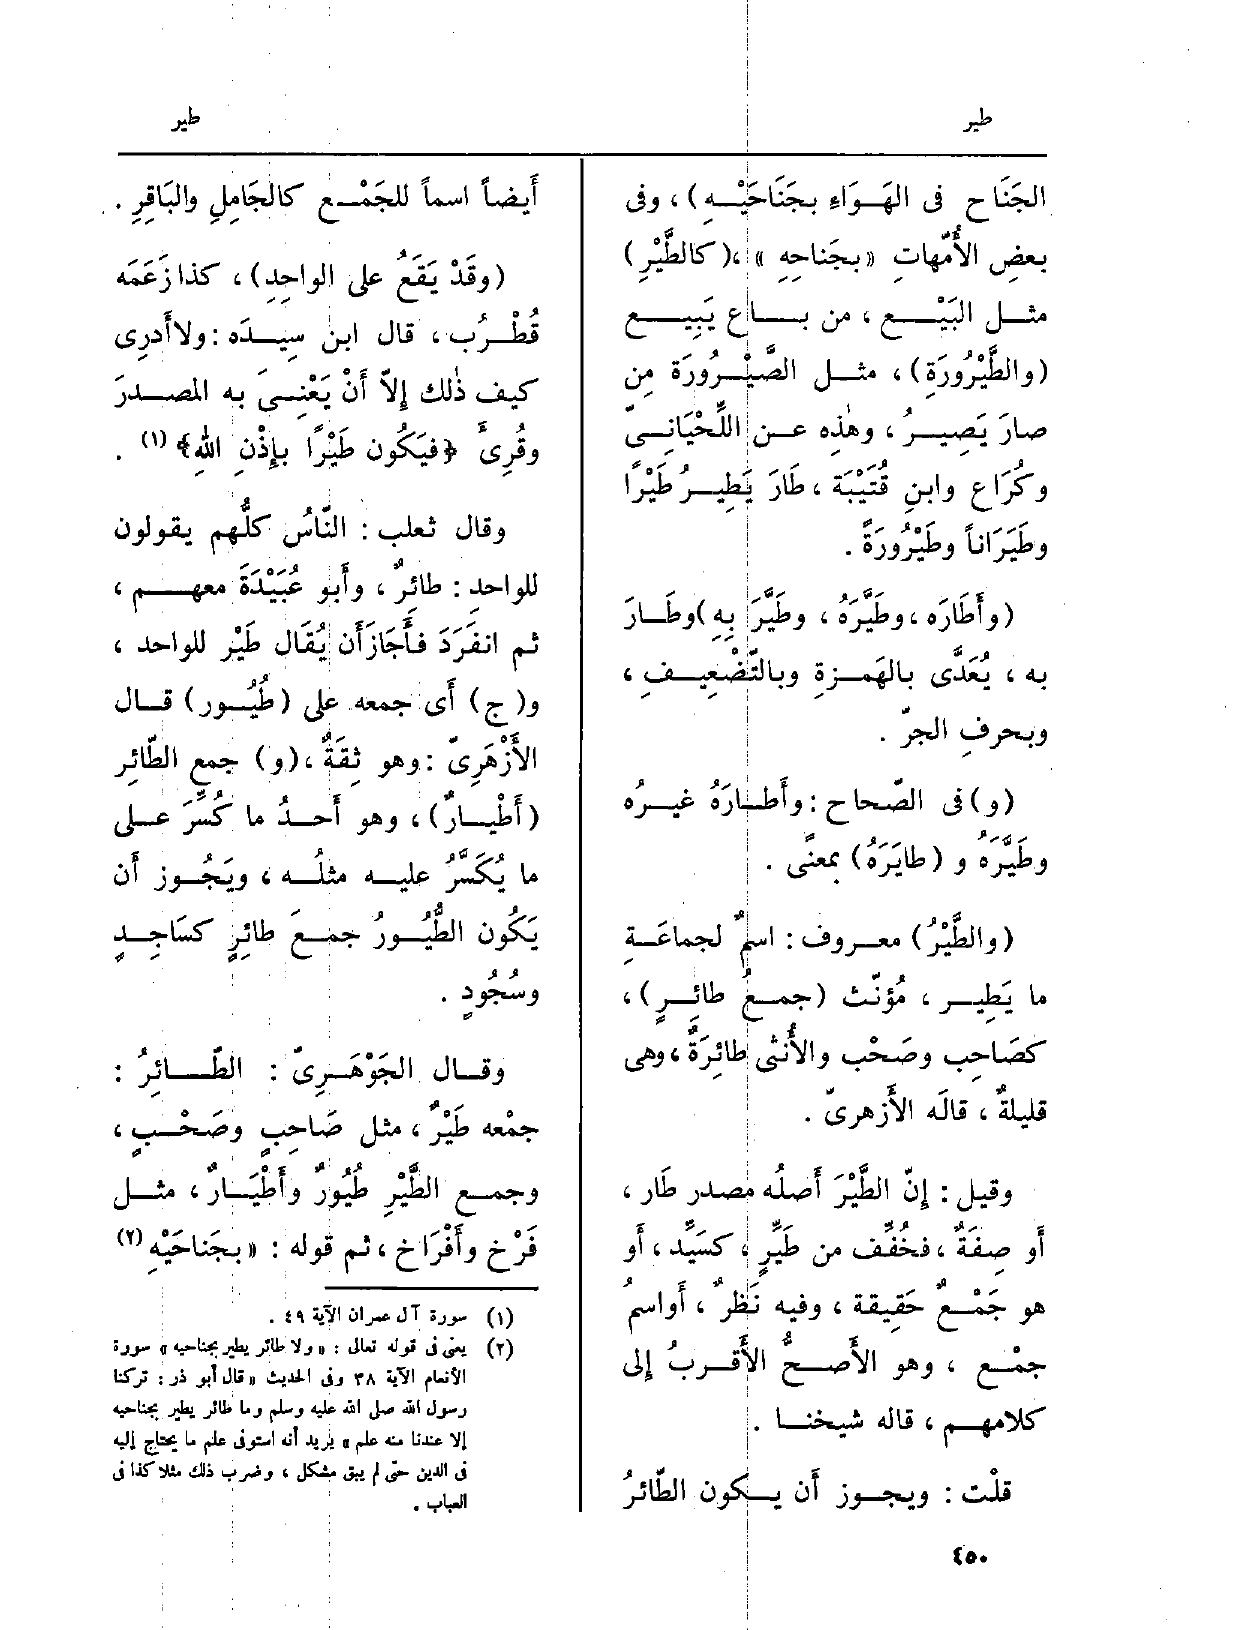 طير
طير
الجَنَاح فى الهَـوَاءِ بجَنَاحَيْـهِ) ، وفى
بعض الأُمّهاتِ «بجَناحِهِ» ،(كالطَّيْرِ)
مثـل البَيْـع ، من بـاع يَبِيـع
(والطَّيْرُورَةِ) ، مثـل الصَّيْـرُورَة مِن
صارَ يَصِيـرُ ، وهٰذِه عـن اللِّحْيَانِـىّ
وكُرَاع وابنِ قُتَيْبَة ، طَارَ يَطِيـرُ طَيْرًا
وطَيَرَاناً وطَيْرُورَةً .
(وأَطَارَه ، وطَيَّرَهُ ، وطَيَّرَ بِهِ) وطَـارَ
به ، يُعَدَّى بالهَمـزةِ وبالتَّضْعِيـف ،
وبحرفِ الجرّ .
(و)فى الصّحاح : وأَطـارَهُ غيـرُه
وطَيَّرَه و (طايَرَهُ) بمعنًى .
(والطَّيْرُ) معـروف : اسمٌ لجماعَـةِ
ما يَطِيـر ، مُؤنّث (جمـعُ طائِـرٍ) ،
كصَاحِبٍ وصَحْب والأُنثى طائرَةٌ ، وهى
قليلةٌ ، قالَه الأَزهرىّ .
وقيل : إنّ الطَّيْرَ أَصلُه مصدر طار ،
أو صِفَةٌ ، فخُفِّف من طَيِّرٍ ، كسَيِّد ، أو
هو جَمْـعٌ حَقِيقة ، وفيه نَظرٌ ، أو اسمُ
جمْـع ، وهو الأَصـحُّ الأَقـربُ إلى
كلامهـم ، قاله شيخنـا .
قلْت : ويجـوز أن يـكون الطّائرُ
أَيضـاً اسمـاً للجَمْـع كالجَامِلِ والبَاقِرِ .
(وقَدْ يَقَعُ على الواحِدِ) ، كذا زَعَمَه
قُطْـرُب ، قال ابن سِيـدَه : ولا أَدرِى
كيف ذٰلك إلاّ أَنْ يَعْنِـىَ به المصـدرَ
وقُرِئَ ﴿فيَكُون طَيْرًا بإِذْنِ اللهِ﴾ (١) .
وقال ثعلب : النّاسُ كلُّهم يقولون
للواحد : طائرٌ ، وأَبو عُبَيْدَةَ معهـم ،
ثم انفَرَدَ فأَجَازَ أَن يُقَال طَيْر للواحد ،
و(ج) أى جمعه على (طُيُـور) قـال
الأَزْهَرِىّ : وهو ثِقَةٌ ، (و) جمع الطّائر
(أَطْيـارٌ) ، وهو أَحـدُ ما كُسِّرَ عـلى
ما يُكَسَّرُ عليـه مثلُـه ، ويَجُـوز أن
يَكُون الطُّيُـورُ جمـعَ طائرٍ كسَاجِـدٍ
وسُجُودٍ .
وقـال الجَوْهَـرِىّ : الطّـائرُ :
جمْعه طَيْرٌ ، مثل صَاحِبٍ وصَحْـبٍ ،
وجمـع الطَّيْرِ طُيُورٌ وأَطْيَـارٌ ، مثـل
فَرْخ وأَفْرَاخ ، ثم قوله : «بجَناحَيْهِ (٢)
(١) سورة آل عمران الآية ٤٩ .
(٢) يعنى فى قوله تعالى : «ولا طائر يطير بجناحيه» سورة
الأنعام الآية ٣٨ وفى الحديث «قال أبو ذر : تركنا
رسول الله صلى الله عليه وسلم وما طائر يطير بجناحيه
إلا عندنا منه علم» يريد أنه استوفى علم ما يحتاج إليه
فى الدين حتى لم يبق مشكل ، وضرب ذلك مثلا كذا فى
العباب .
٤٥٠